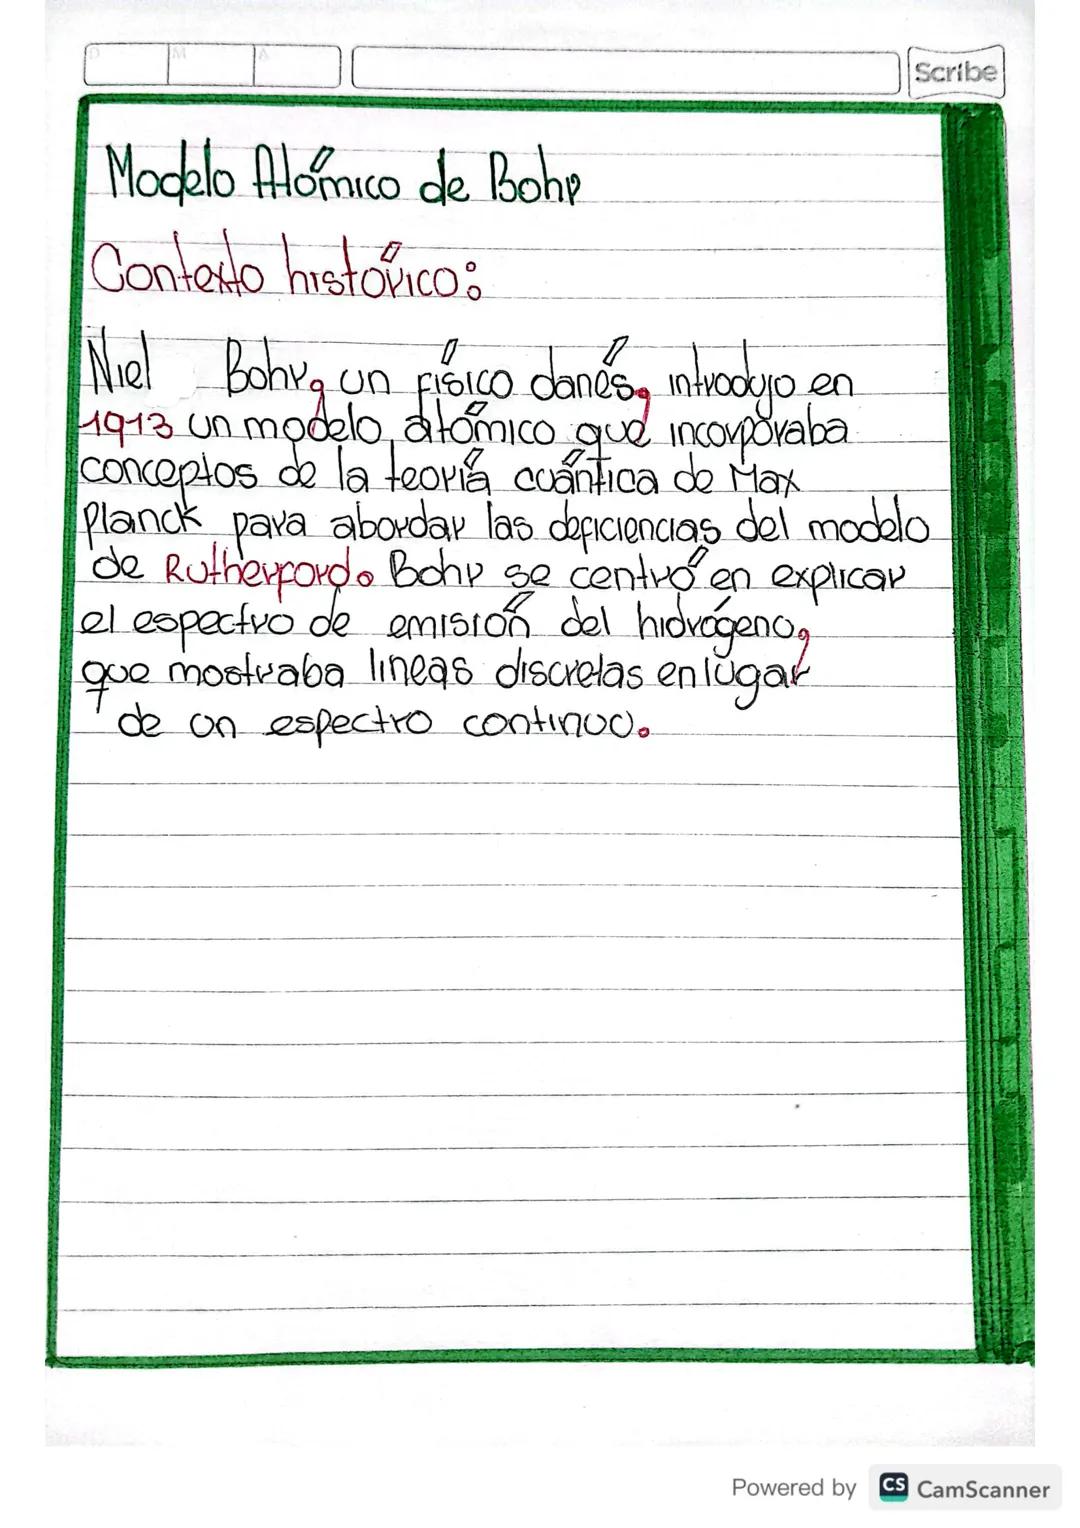 D M A Scribe
Modelo Atómico de Bohr
Contexto histórico:
Niel Bohr, un físico danés, introdujo en
1913 un modelo atómico que incorporaba
conceptos de la teoría cuántica de Max
Planck para abordar las deficiencias del modelo
de Rutherford. Bohr se centró en explicar
el espectro de emisión del hidrógeno,
que mostraba lineas discretas en lugar
de un espectro continuo.
Powered by CS CamScanner